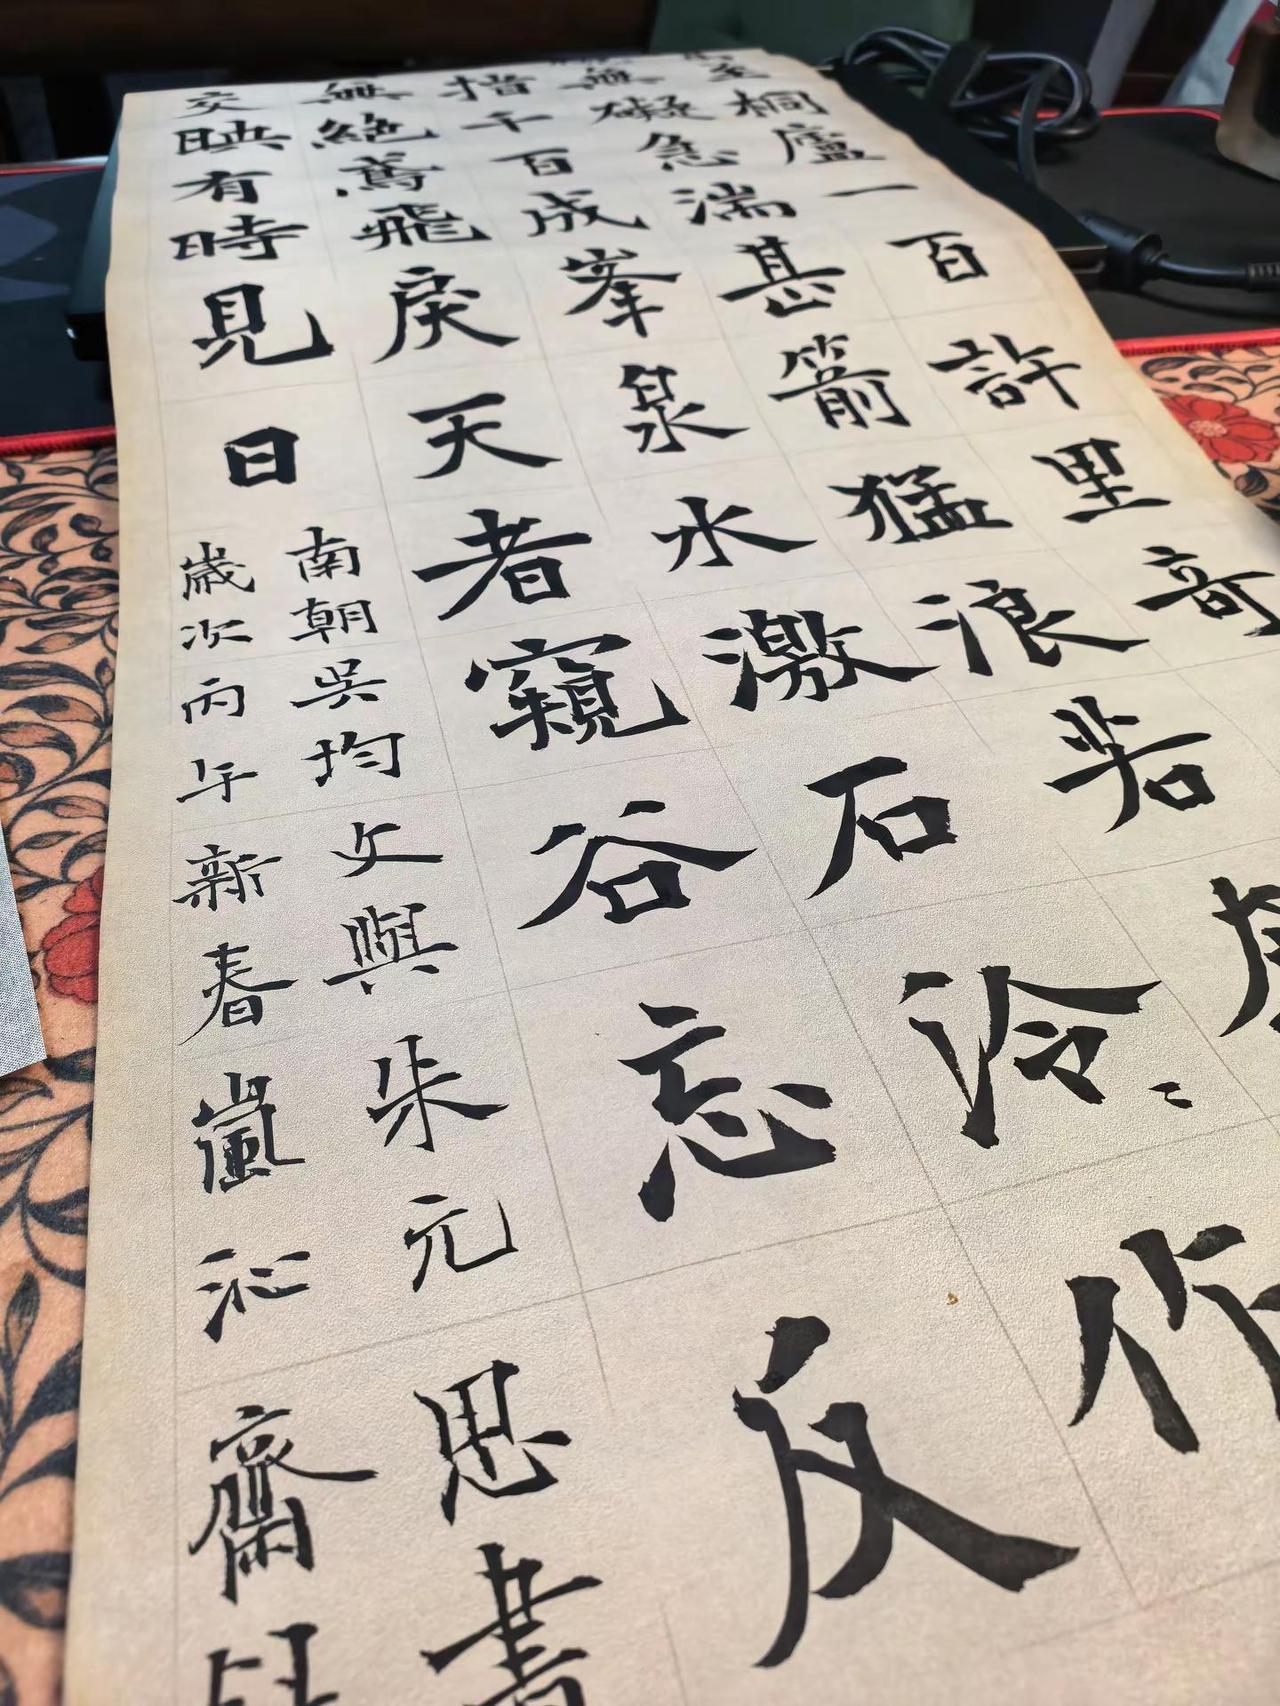 至桐廬一百許里奇
無礙急湍甚箭猛浪若
指千百成峯泉水激石泠〻作
無絕鳶飛戾天者窺谷忘反
交映有時見日
南朝吳均文與朱元思書
歲次丙午新春嵐沁齋